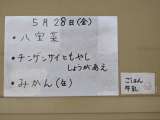 5月28日(金)
・八宝菜
・チンゲンサイともやし
しょうがあえ
・みかん(缶)
ごはん
牛乳